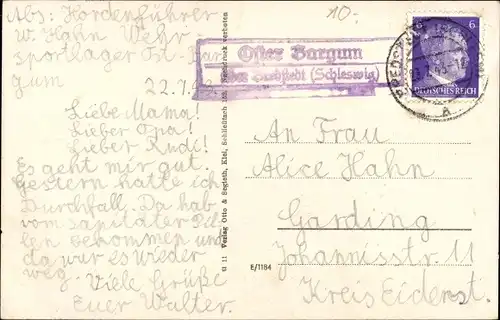 Abs: Hordenführer
W. Hahn Wehr
sportlager Ost-Bar
gum
22.7.4
Liebe Mama!
Lieber Opa!
Lieber Rudi!
Es geht mir gut.
Gestern hatte ich
Durchfall. Da hab
vom sanitäter Pil
len bekommen und
da war es wieder
weg. Viele Grüße
Euer Walter.
10.-
Oster Bargum
(Schleswig)
6
DEUTSCHES REICH
A
An Frau
Alice Hahn
Garding
Johannisstr. 11
Kreis Eiderst.
U 11 Verlag Otto & Segleth, Kiel, Schließfach
verboten
E/1184